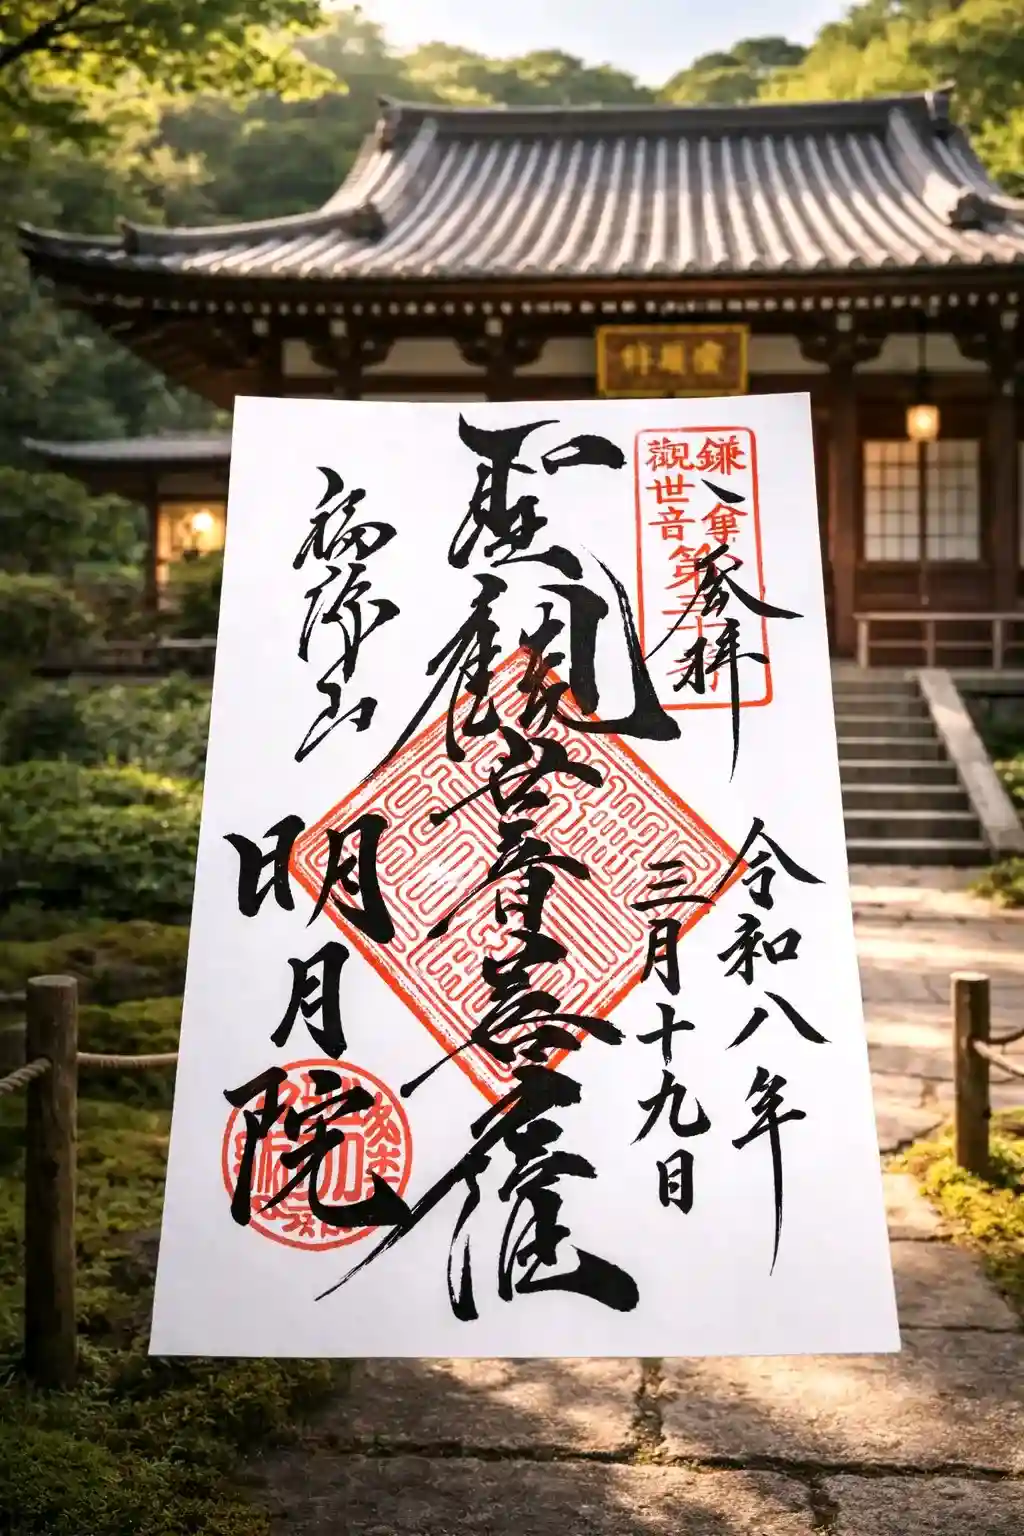 鎌倉
觀世音
第三十番
奉拝
令和八年
三月十九日
聖観世音菩薩
福源山
明月院